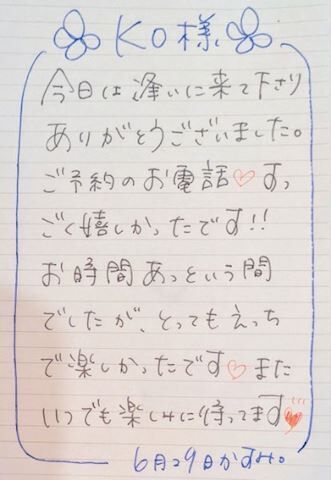 KO様
今日は逢いに来て下さり
ありがとうございました。
ご予約のお電話♡すっ
ごく嬉しかったです!!
お時間あっという間
でしたが、とってもえっち
で楽しかったです♡また
いつでも楽しみに待ってます♥
6月29日かすみ。